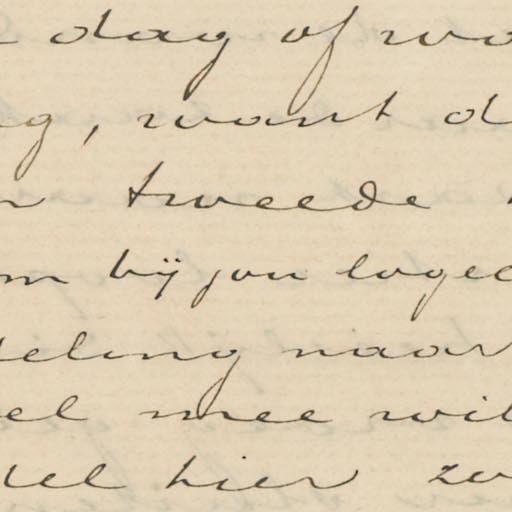 dag of wo
g, want d
tweede
m bÿ jou loge
deling naar
el mee wil
del hier zo